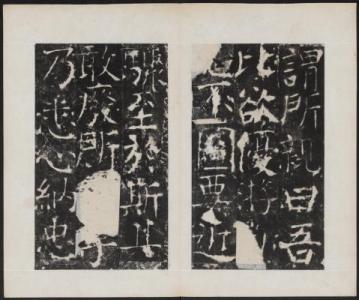 謂所親曰吾
比欲優游
國要近
驟至於斯上
敢廢所
乃悉心納忠